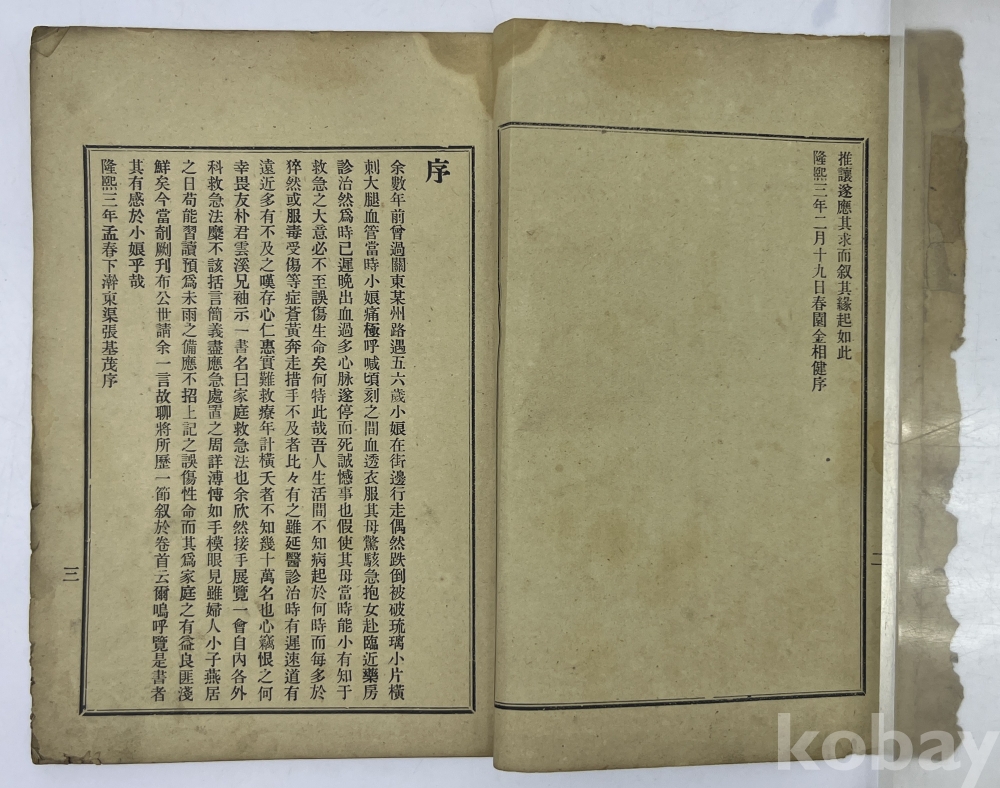 推讓遂應其求而叙其緣起如此
隆熙三年二月十九日春園金相健序
二
序
余數年前曾過關東某州路遇五六歲小娘在街邊行走偶然跌倒被破琉璃小片橫
刺大腿血管當時小娘痛極呼喊頃刻之間血透衣服其母驚駭急抱女赴臨近藥房
診治然爲時已遲晚出血過多心脉遂停而死誠憾事也假使其母當時能小有知于
救急之大意必不至誤傷生命矣何特此哉吾人生活間不知病起於何時而每多於
猝然或服毒受傷等症蒼黃奔走措手不及者比々有之雖延醫診治時有遲速道有
遠近多有不及之嘆存心仁惠實難救療年計橫夭者不知幾十萬名也心竊恨之何
幸畏友朴君雲溪兄袖示一書名曰家庭救急法也余欣然接手展覽一會自內各外
科救急法麋不該括言簡義盡應急處置之周詳溥愽如手模眼見雖婦人小子燕居
之日苟能習讀預爲未雨之備應不招上記之誤傷性命而其爲家庭之有益良匪淺
鮮矣今當剞劂刊布公世請余一言故聊將所歷一節叙於卷首云爾嗚呼覽是書者
其有感於小娘乎哉
隆熙三年孟春下澣東渠張基茂序
三
kobay